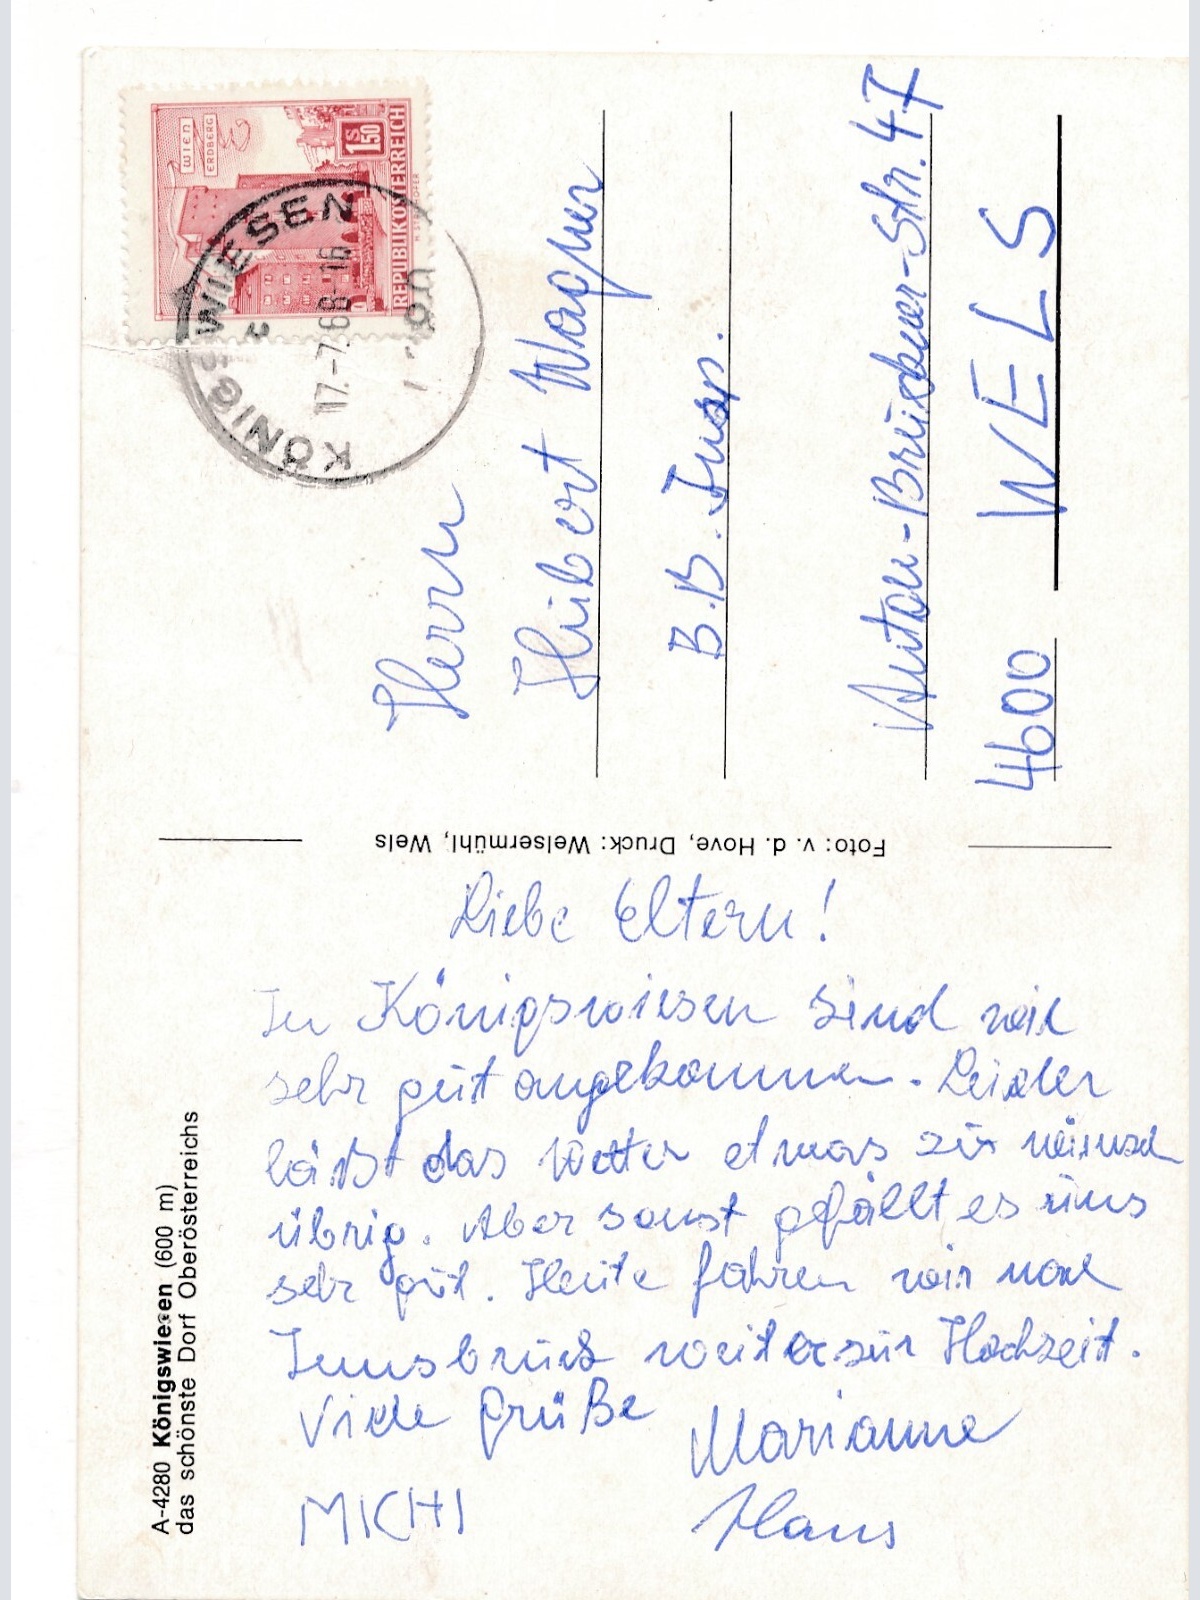 WIEN
ERDBERG
1 S 50
REPUBLIK ÖSTERREICH
KÖNIGSWIESEN
17.-7.68-16
Herrn
Hubert Wagner
B.B. Insp.
Anton-Bruckner-Str. 47
4600 WELS
Foto: v. d. Hove, Druck: Welsermühl, Wels
Liebe Eltern!
In Königswiesen sind wir
sehr gut angekommen. Leider
läßt das Wetter etwas zu wünsch
übrig. Aber sonst gefällt es uns
sehr gut. Heute fahren wir nach
Innsbruck weiter zur Hochzeit.
Viele Grüße
Marianne
MICHI
Hans
A-4280 Königswiesen (600 m)
das schönste Dorf Oberösterreichs